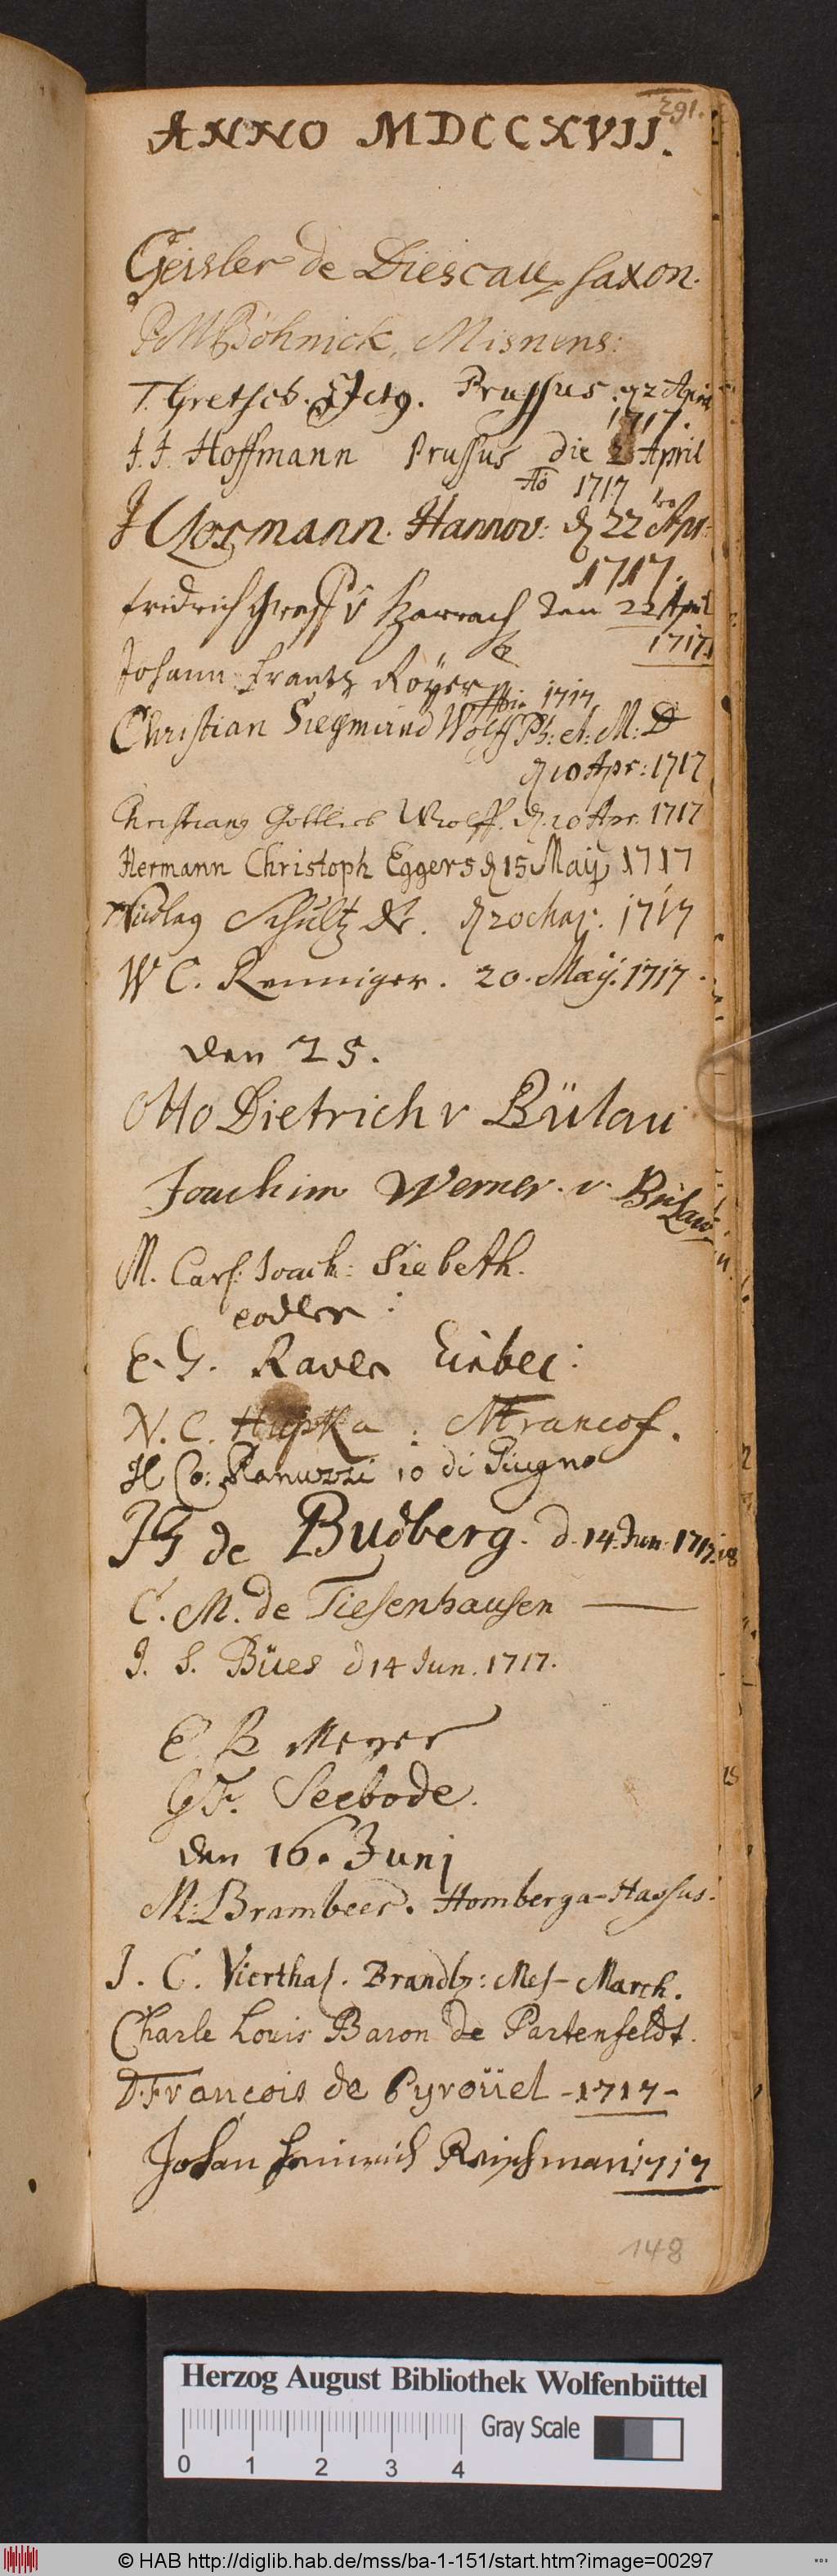 291.
ANNO MDCCXVII.
Geisler de Diescau, Saxon.
Böhnick, Misnens:
T. Gretsch. Prussus. d 2 April
1717.
J. J. Hoffmann Prussus die 2 April
Ao 1717
Hannov: d 22 Apr:
1717.
Fridrich Graff v Harrach den 22 April
1717.
Johann Frantz Röyer
1717
Christian Siegmund Wolff Ph: et: M: D
d 10 Apr: 1717
Gottlieb Wolff. d. 10 Apr. 1717
Hermann Christoph Eggers d 15 Maij 1717
Schultz Dr. d 20 1717
W C. Renniger. 20. Maÿ. 1717.
den 25.
Otto Dietrich v Bülau
Joachim Werner. v. Bülau
M. Carl: Joach: Siebeth.
eodem:
E. G. Raven Einbec:
N. C. Hupka.
Co: Ranuzzi 10 di Giugno
JG de Budberg. d. 14. Jun. 1717.
C. M. de Tiesenhausen
J. S. Bües d 14 Jun. 1717.
E. B Meyer
Seebode.
den 16. Junj
M: Brambeer. Homberga-Hassus.
J. C. Vierthal. Brandb: Mes-March.
Charle Louis Baron de Partenfeldt.
D. Francois de Pyroüel -1717-
Johan Heinrich Reischman 1717
148
Herzog August Bibliothek Wolfenbüttel
Gray Scale
0 1 2 3 4
© HAB http://diglib.hab.de/mss/ba-1-151/start.htm?image=00297